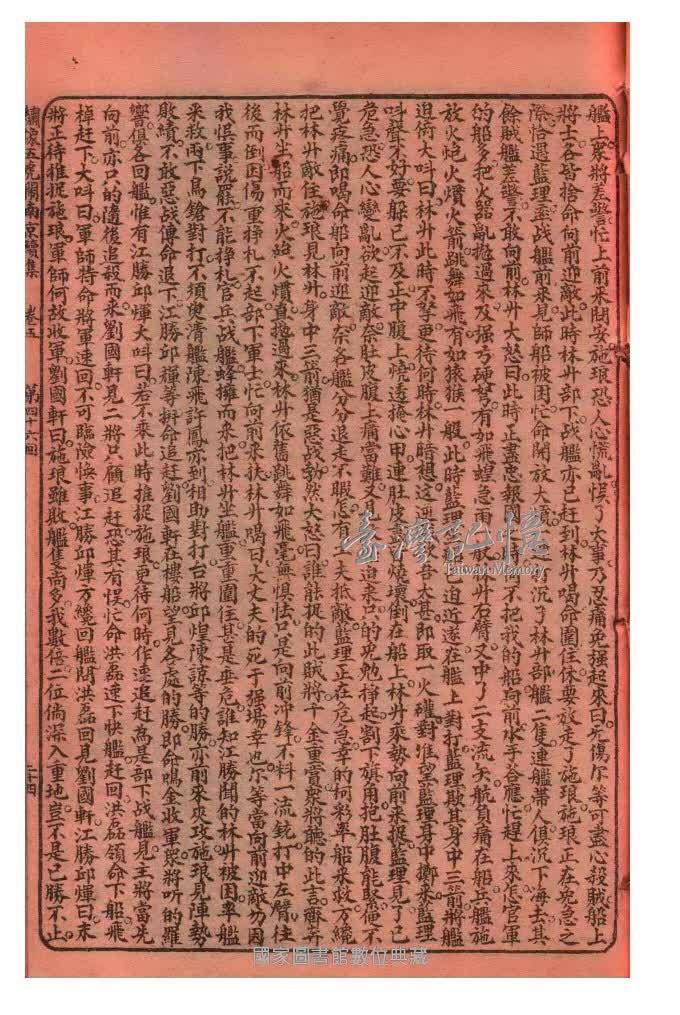 艦上衆將差警忙上前来問安施琅恐人心慌亂悮了大事乃忍痛免强起來曰無傷尔等可盡心殺賊船上
將士各皆捨命向前迎敵此時林升部下战艦亦已赶到林升喝命圍住休要放走了施琅施琅正在危急之
際恰遇藍理率战艦前來見師船被困忙命開放大 沉了林升部艦二隻連艦帶人俱沉下海去其
餘賊艦差警不敢向前林升大怒曰此時正盡忠報國 不把我的船向前水手答應忙趕上來怎官軍
的船多把火器亂拋過來及强弓硬弩有如飛蝗急雨 林升石臂又中了二支流矢航負痛在船兵艦施
放火炮火爟火箭跳舞如飛有如猿猴一般此時藍理 船 迫近遂在艦上對打藍理欺其身中三箭將艦
迫倚大呌曰林升此時不拏更待何時林升暗想這 吾太甚即取一火礶對准望藍理身中擲來藍理
呌聲不好要躲已不及正中腹上燒透掩心甲連肚皮 燒壞倒在船上林升乘勢向前捉藍理見了已
危急恐人心變亂欲起迎敵奈肚皮腹上痛當難又 迫來只的免勉掙起劉下旗角把肚腹能緊便不
覺疼痛即喝命船向前迎敵奈各艦分分退走不暇怎有 夫抵敵藍理正在危急幸的柯彩率船來救方纔
把林升敵住施琅見林升身中三箭猶是惡战勃然大怒曰誰能扳的此賊將千金重賞衆將聽的此言齊奔
林升坐船而來火炮火爟直拋過來林升依舊跳舞如飛毫無惧怯只是向前冲鋒不料一流銃打中左臂往
後而倒因傷重掙札不起部下軍士忙向前來扶林升隅曰大丈夫的死于强塲幸也尔等當向前迎敵勿因
我悞事說罷不能掙札官兵战艦蜂擁而來把林升坐艦重重圍住甚是垂危誰知江勝聞的林升被困率艦
来救兩下鳥鎗對打不須臾清艦陳飛許鳳亦到相助對打台將邱煌陳諒等的勝亦前來夾攻施琅見陣勢
敗績不敢惡战傳命退下江勝邱輝等拚命追赶劉國軒在樓船望見各處的勝即命鳴金收軍眾將听的羅
響俱各回艦惟有江勝邱煇大呌曰若不乘此時推捉施琅更待何時作速追赶為是部下战艦見主將當先
向前亦只的隨後追殺而來劉國軒見二將只顧追赶恐其有悮忙命洪磊速下快艦赶回洪磊領命下船飛
棹赶下大呌曰軍師特命將軍速回不可臨險悞事江勝邱煇方纔回艦聞洪磊回見劉國軒江勝邱煇曰末
將正待推捉施琅軍師何故收軍劉國軒曰施琅雖敗艦隻尚多我數倍二位倘深入重地豈不是已勝不止
繡像五虎閙南京續集 卷五 第四十六回 二十四
臺灣記憶
Taiwan Memory
國家圖書館數位典藏